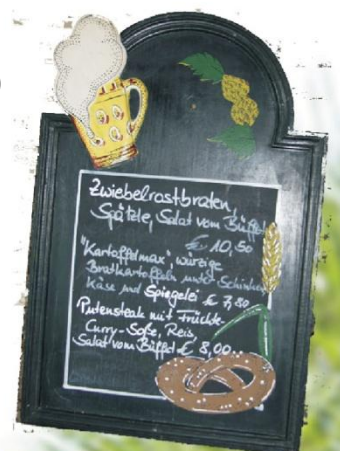 Zwiebelrostbraten,
Spätzle, Salat vom Büffet
€ 10,50
"Kartoffelmax", würzige
Bratkartoffeln unter Schinken
Käse und Spiegelei € 7,80
Putensteak mit Früchte-
Curry-Soße, Reis,
Salat vom Büffet € 8,00